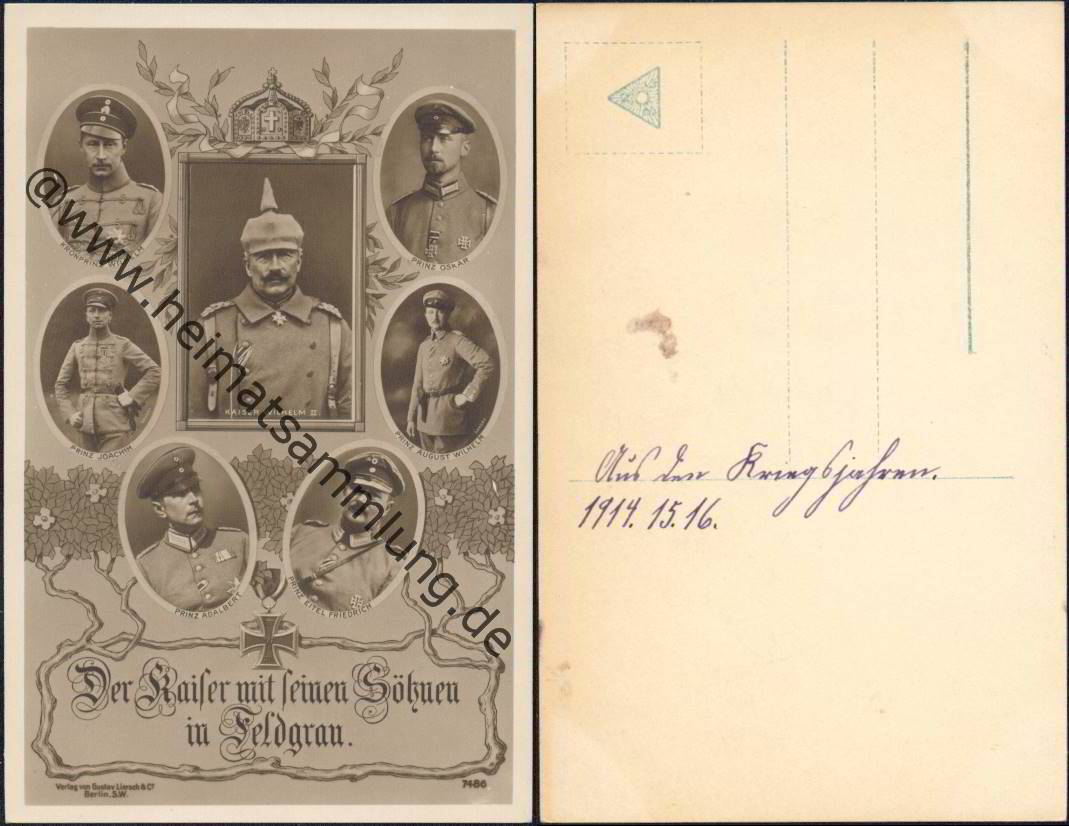 KRONPRINZ WILHELM
PRINZ OSKAR
KAISER WILHELM II.
PRINZ JOACHIM
PRINZ AUGUST WILHELM
PRINZ ADALBERT
PRINZ EITEL FRIEDRICH
Der Kaiser mit seinen Söhnen
in Feldgrau.
Verlag von Gustav Liersch & Co
Berlin. S.W.
7486
@www.heimatsammlung.de
Aus den Kriegsjahren.
1914. 15. 16.